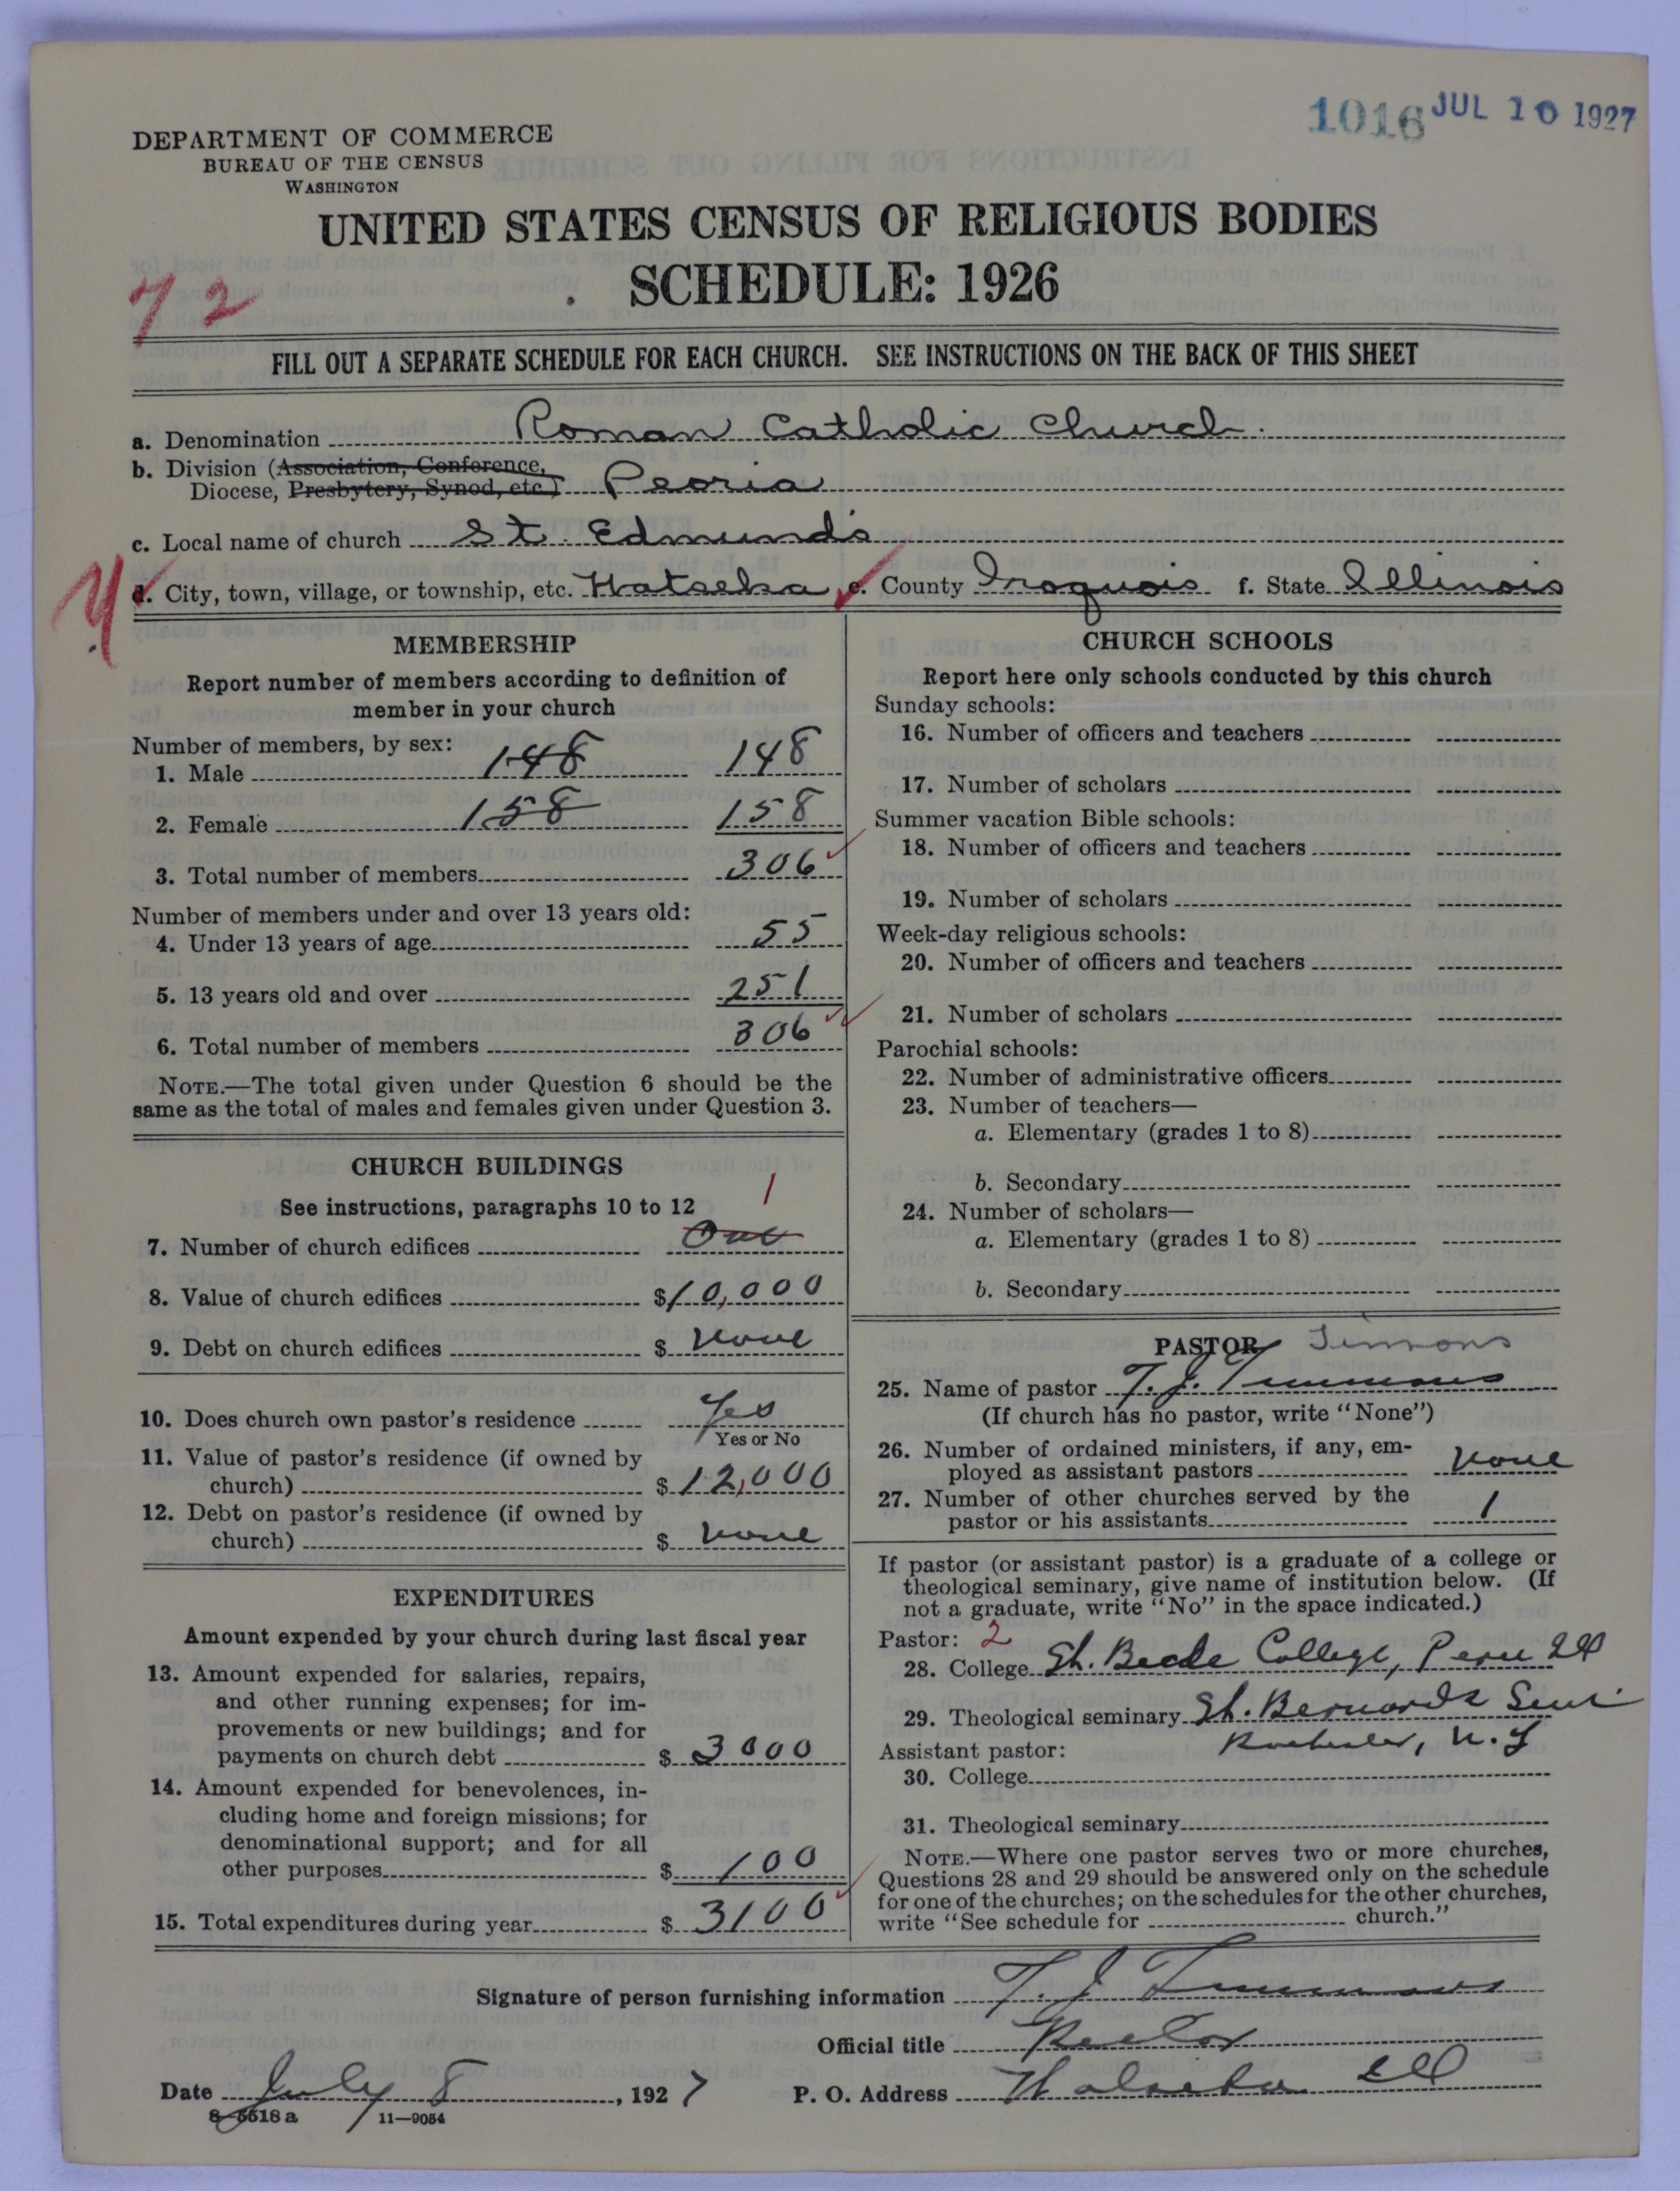 1016 JUL 10 1927
DEPARTMENT OF COMMERCE
BUREAU OF THE CENSUS
WASHINGTON
UNITED STATES CENSUS OF RELIGIOUS BODIES
SCHEDULE: 1926
72
FILL OUT A SEPARATE SCHEDULE FOR EACH CHURCH. SEE INSTRUCTIONS ON THE BACK OF THIS SHEET
a. Denomination Roman Catholic Church.
b. Division (Association, Conference,
Diocese, Presbytery, Synod, etc.) Peoria
c. Local name of church St. Edmund's
d. City, town, village, or township, etc. Watseka e. County Iroquois f. State Illinois
MEMBERSHIP
Report number of members according to definition of
member in your church
Number of members, by sex:
1. Male 148 148
2. Female 158 158
3. Total number of members 306
Number of members under and over 13 years old:
4. Under 13 years of age 55
5. 13 years old and over 251
6. Total number of members 306
NOTE.—The total given under Question 6 should be the
same as the total of males and females given under Question 3.
CHURCH BUILDINGS
See instructions, paragraphs 10 to 12
1
7. Number of church edifices One
8. Value of church edifices $10,000
9. Debt on church edifices $ none
10. Does church own pastor's residence Yes
Yes or No
11. Value of pastor's residence (if owned by
church) $ 12,000
12. Debt on pastor's residence (if owned by
church) $ none
EXPENDITURES
Amount expended by your church during last fiscal year
13. Amount expended for salaries, repairs,
and other running expenses; for im-
provements or new buildings; and for
payments on church debt $ 3000
14. Amount expended for benevolences, in-
cluding home and foreign missions; for
denominational support; and for all
other purposes $ 100
15. Total expenditures during year $ 3100
CHURCH SCHOOLS
Report here only schools conducted by this church
Sunday schools:
16. Number of officers and teachers
17. Number of scholars
Summer vacation Bible schools:
18. Number of officers and teachers
19. Number of scholars
Week-day religious schools:
20. Number of officers and teachers
21. Number of scholars
Parochial schools:
22. Number of administrative officers
23. Number of teachers—
a. Elementary (grades 1 to 8)
b. Secondary
24. Number of scholars—
a. Elementary (grades 1 to 8)
b. Secondary
PASTOR Timmons
25. Name of pastor T. J. Timmons
(If church has no pastor, write "None")
26. Number of ordained ministers, if any, em-
ployed as assistant pastors none
27. Number of other churches served by the
pastor or his assistants 1
If pastor (or assistant pastor) is a graduate of a college or
theological seminary, give name of institution below. (If
not a graduate, write "No" in the space indicated.)
Pastor: 2
28. College St. Bede College, Peru Ill
29. Theological seminary St. Bernards Semi
Rochester, N. Y
Assistant pastor:
30. College
31. Theological seminary
NOTE.—Where one pastor serves two or more churches,
Questions 28 and 29 should be answered only on the schedule
for one of the churches; on the schedules for the other churches,
write "See schedule for church."
Signature of person furnishing information T. J. Timmons
Official title Rector
Date July 8, 1927 P. O. Address Watseka Ill
8-5518 a 11—9054